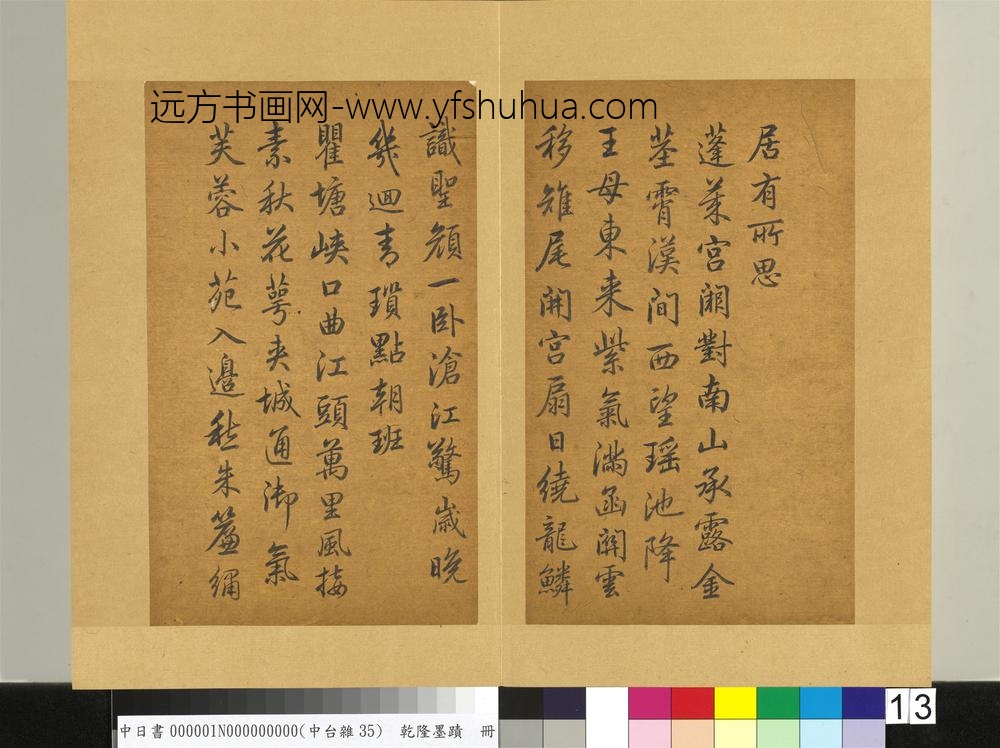 远方书画网-www.yfshuhua.com
居有所思
蓬萊宮闕對南山承露金
莖霄漢間西望瑤池降
王母東來紫氣滿函關雲
移雉尾開宮扇日繞龍鱗
識聖顏一卧滄江驚歲晚
幾迴青瑣點朝班
瞿塘峽口曲江頭萬里風接
素秋花萼夾城通御氣
芙蓉小苑入邊愁朱簾繡
中日書000001N000000000(中台雜35) 乾隆墨蹟 冊
13